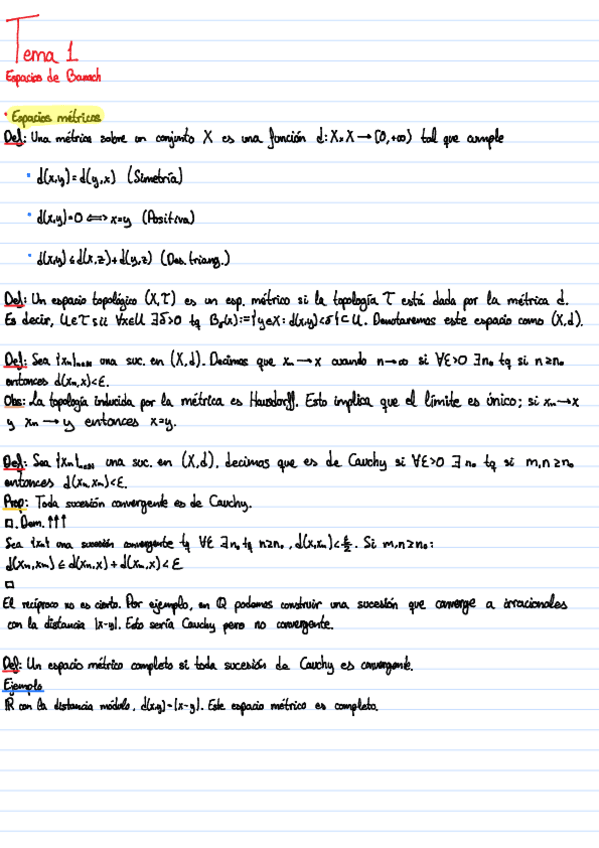 Tema 1
Espacios de Banach
• Espacios métricos
Def: Una métrica sobre un conjunto X es una función d: X×X → [0,+∞) tal que cumple
• d(x,y)=d(y,x) (Simetría)
• d(x,y)=0 ⟺ x=y (Positiva)
• d(x,y) ≤ d(x,z)+d(y,z) (Des. triang.)
Def: Un espacio topológico (X,τ) es un esp. métrico si la topología τ está dada por la métrica d.
Es decir, U∈τ sii ∀x∈U ∃δ>0 tq Bδ(x):={y∈X: d(x,y)<δ}⊂U. Denotaremos este espacio como (X,d).
Def: Sea {xn}n∈N una suc. en (X,d). Decimos que xn → x cuando n→∞ si ∀ε>0 ∃n₀ tq si n≥n₀
entonces d(xn,x)<ε.
Obs: La topología inducida por la métrica es Hausdorff. Esto implica que el límite es único; si xn→x
y xn → y entonces x=y.
Def: Sea {xn}n∈N una suc. en (X,d), decimos que es de Cauchy si ∀ε>0 ∃ n₀ tq si m,n≥n₀
entonces d(xn,xm)<ε.
Prop: Toda sucesión convergente es de Cauchy.
□. Dem. ↑↑↑
Sea {xn} una sucesión convergente tq ∀ε ∃n₀ tq n≥n₀, d(x,xn)<ε/2. Si m,n≥n₀:
d(xn,xm) ≤ d(xn,x)+d(xm,x)<ε
□
El recíproco no es cierto. Por ejemplo, en Q podemos construir una sucesión que converge a irracionales
con la distancia |x-y|. Esto sería Cauchy pero no convergente.
Def: Un espacio métrico completo si toda sucesión de Cauchy es convergente.
Ejemplo
R con la distancia módulo, d(x,y)=|x-y|. Este espacio métrico es completo.